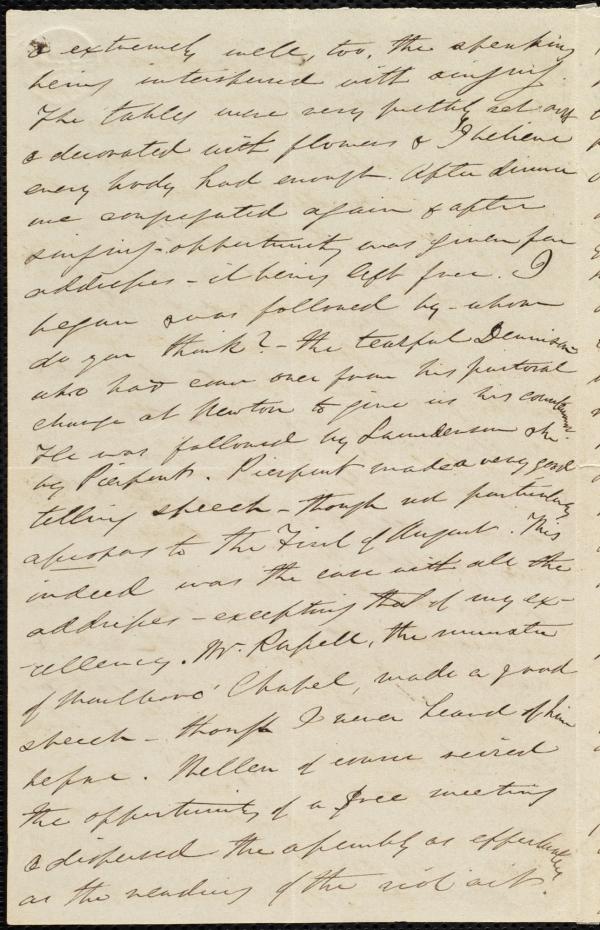 & extremely well, too, the speaking
being interspersed with singing.
The tables were very prettily set out
& decorated with flowers & I believe
every body had enough. After dinner
we congregated again & after
singing - opportunity was given for
addresses - it being left free. I
began & was followed by - whom
do you think? - the tearful Dennison
who had come over from his pastoral
charge at Newton to give us his countenance.
He was followed by Saunderson & he
by Pierpont. Pierpont made a very good
telling speech - though not particularly
apropos to the First of August. This
indeed was the case with all the
addresses - excepting that of my ex-
-cellency. Mr. Russell, the minister
of Marlboro' Chapel, made a good
speech - though I never heard of him
before. Mellen of course seized
the opportunity of a free meeting
& dispersed the assembly as effectually
as the reading of the riot act.